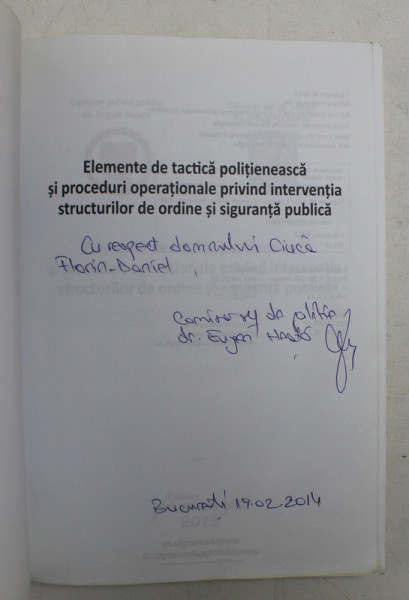 Elemente de tactică polițienească
și proceduri operaționale privind intervenția
structurilor de ordine și siguranță publică
Cu respect domnului Ciucă
Florin-Daniel
Comisar șef de poliție
dr. Eugen
București 19.02.2014